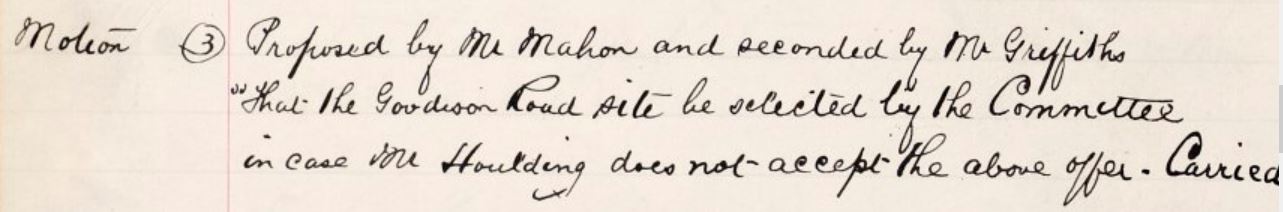 Motion (3) Proposed by Mr Mahon and seconded by Mr Griffiths
"That the Goodison Road site be selected by the Committee
in case Mr Houlding does not accept the above offer - Carried